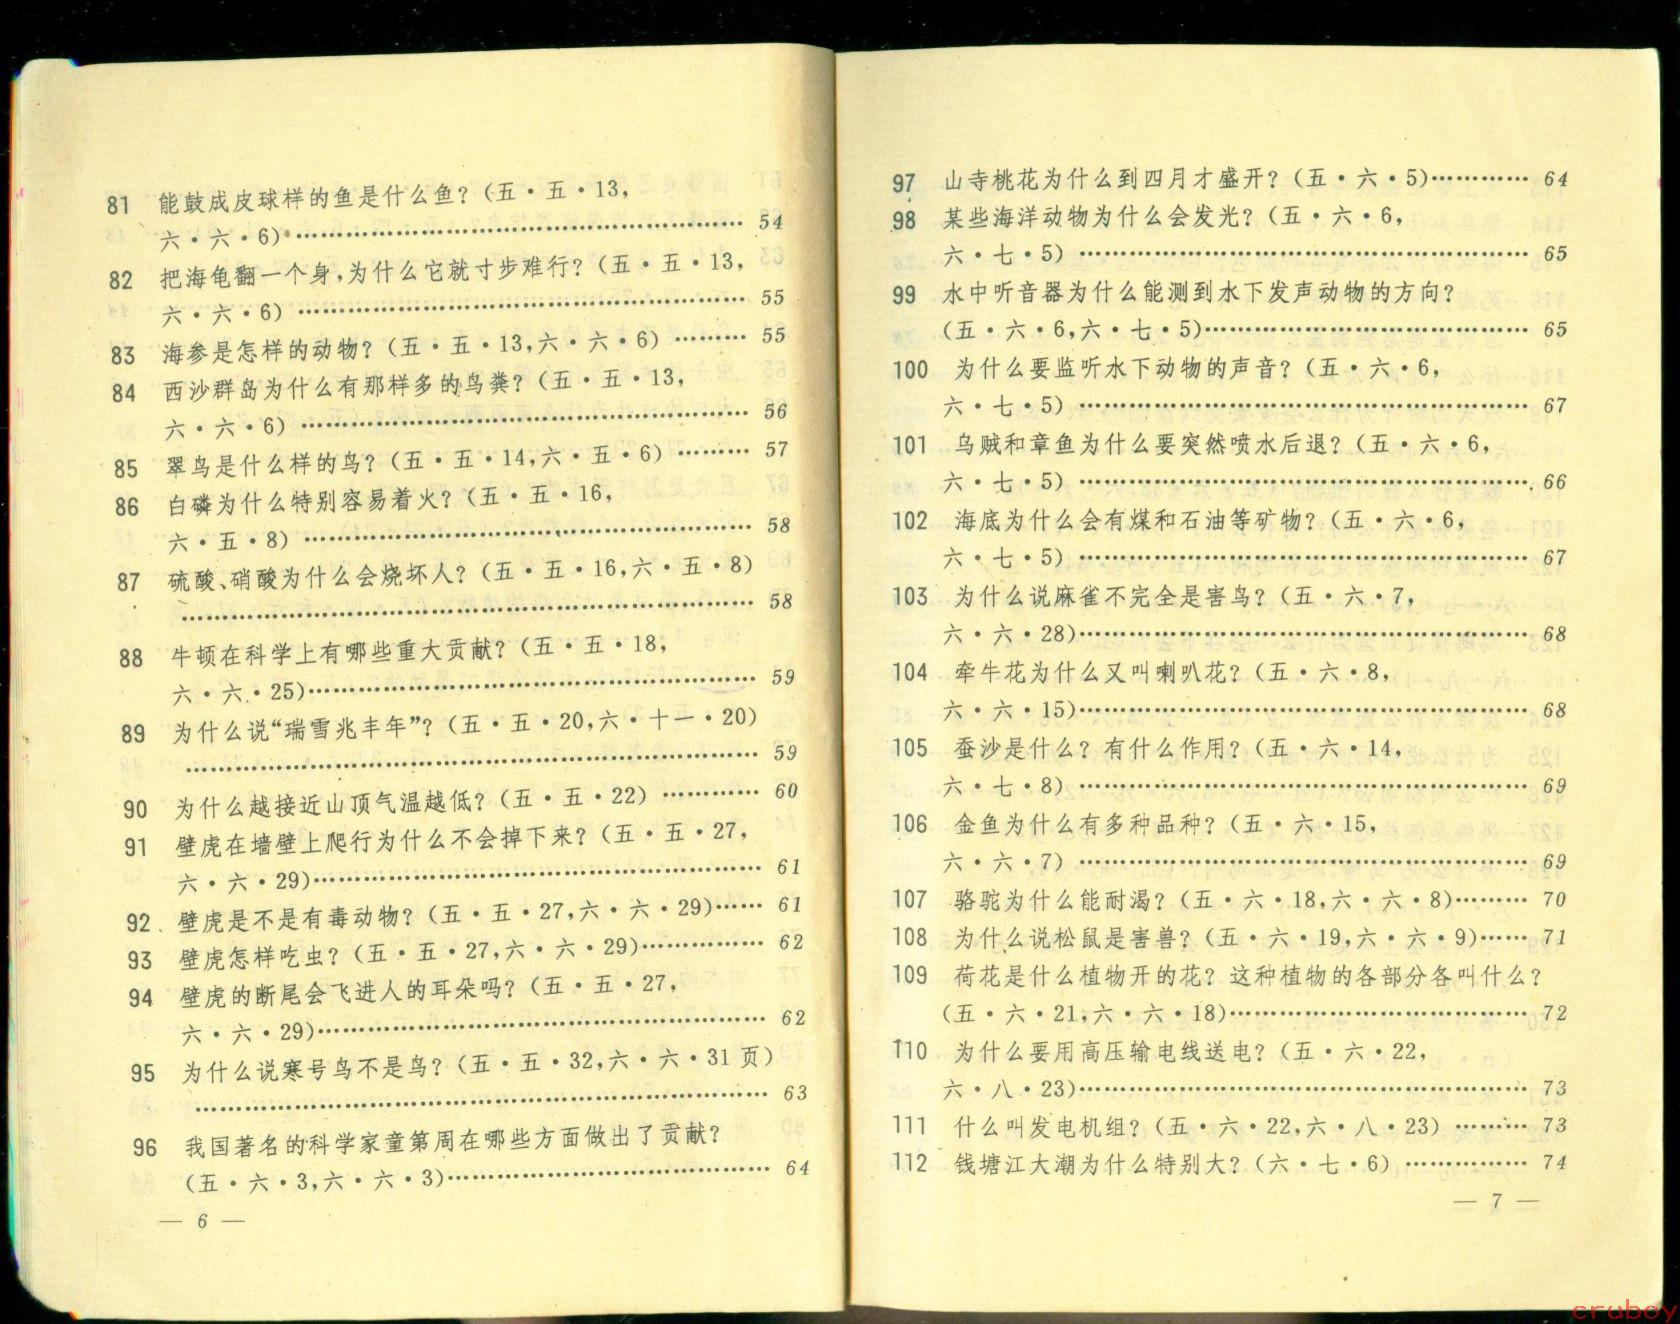 81 能鼓成皮球样的鱼是什么鱼？（五·五·13，
六·六·6）…………………………………………………… 54
82 把海龟翻一个身，为什么它就寸步难行？（五·五·13，
六·六·6） …………………………………………………… 55
83 海参是怎样的动物？（五·五·13，六·六·6） ……… 55
84 西沙群岛为什么有那样多的鸟粪？（五·五·13，
六·六·6） …………………………………………………… 56
85 翠鸟是什么样的鸟？（五·五·14，六·五·6） ……… 57
86 白磷为什么特别容易着火？（五·五·16，
六·五·8） …………………………………………………… 58
87 硫酸、硝酸为什么会烧坏人？（五·五·16，六·五·8）
…………………………………………………………………… 58
88 牛顿在科学上有哪些重大贡献？（五·五·18，
六·六·25）………………………………………………… 59
89 为什么说“瑞雪兆丰年”？（五·五·20，六·十一·20）
…………………………………………………………………… 59
90 为什么越接近山顶气温越低？（五·五·22） ………… 60
91 壁虎在墙壁上爬行为什么不会掉下来？（五·五·27，
六·六·29）………………………………………………… 61
92 壁虎是不是有毒动物？（五·五·27，六·六·29）…… 61
93 壁虎怎样吃虫？（五·五·27，六·六·29）…………… 62
94 壁虎的断尾会飞进人的耳朵吗？（五·五·27，
六·六·29）………………………………………………… 62
95 为什么说寒号鸟不是鸟？（五·五·32，六·六·31页）
…………………………………………………………………… 63
96 我国著名的科学家童第周在哪些方面做出了贡献？
（五·六·3，六·六·3）…………………………………… 64
— 6 —
97 山寺桃花为什么到四月才盛开？（五·六·5）………… 64
98 某些海洋动物为什么会发光？（五·六·6，
六·七·5） …………………………………………………… 65
99 水中听音器为什么能测到水下发声动物的方向？
（五·六·6，六·七·5）…………………………………… 65
100 为什么要监听水下动物的声音？（五·六·6，
六·七·5） …………………………………………………… 67
101 乌贼和章鱼为什么要突然喷水后退？（五·六·6，
六·七·5） …………………………………………………… 66
102 海底为什么会有煤和石油等矿物？（五·六·6，
六·七·5） …………………………………………………… 67
103 为什么说麻雀不完全是害鸟？（五·六·7，
六·六·28）………………………………………………… 68
104 牵牛花为什么又叫喇叭花？（五·六·8，
六·六·15）………………………………………………… 68
105 蚕沙是什么？有什么作用？（五·六·14，
六·七·8） …………………………………………………… 69
106 金鱼为什么有多种品种？（五·六·15，
六·六·7） …………………………………………………… 69
107 骆驼为什么能耐渴？（五·六·18，六·六·8）……… 70
108 为什么说松鼠是害兽？（五·六·19，六·六·9）…… 71
109 荷花是什么植物开的花？这种植物的各部分各叫什么？
（五·六·21，六·六·18）………………………………… 72
110 为什么要用高压输电线送电？（五·六·22，
六·八·23）………………………………………………… 73
111 什么叫发电机组？（五·六·22，六·八·23） ……… 73
112 钱塘江大潮为什么特别大？（六·七·6） …………… 74
— 7 —
cruboy